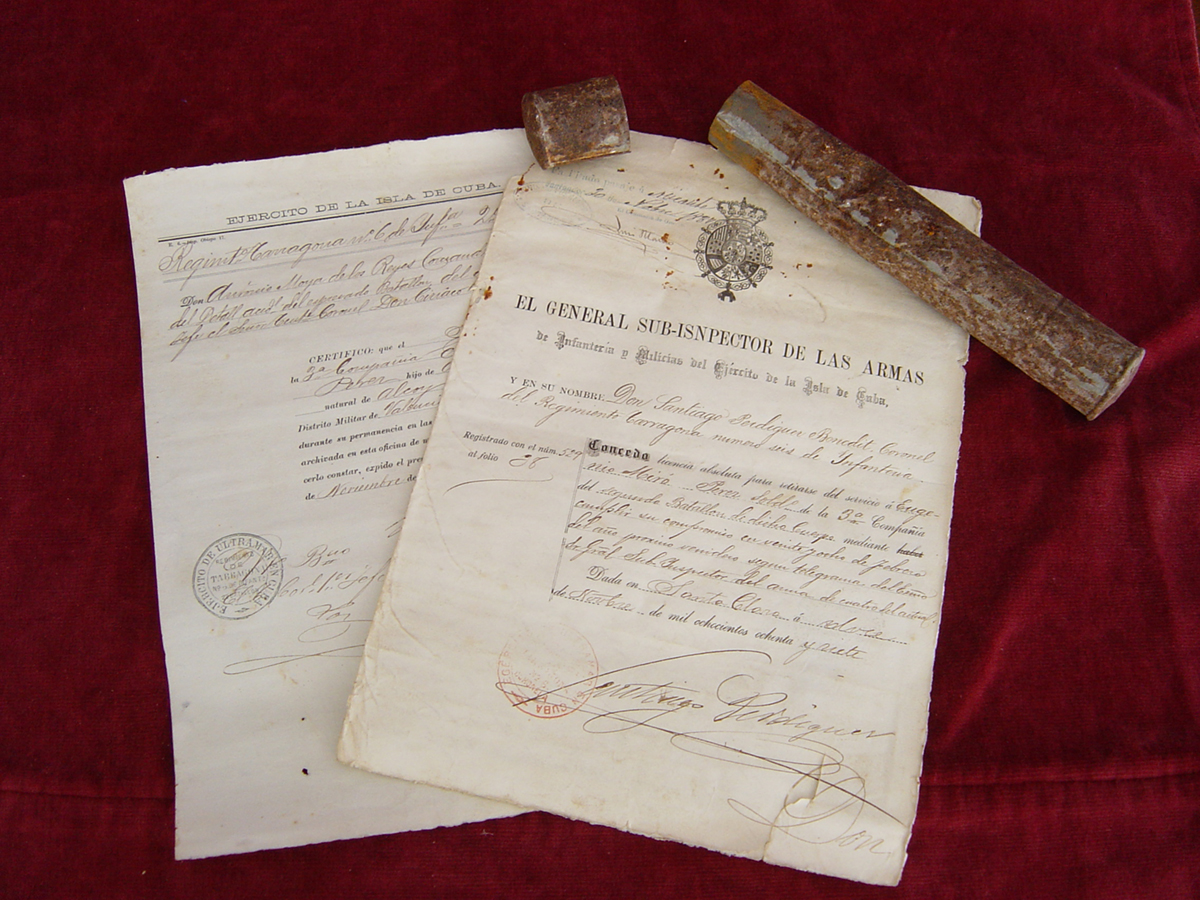 EJERCITO DE LA ISLA DE CUBA.
Regimto Tarragona nº 6 de Infa 2
Don Antonio Moya de los Reyes Comand
del Detall acc.l del segundo Batallon del
Jefe el Señor Tente Coronel Don Ciriaco
CERTIFICO: que el
la 3ª Compañia
Perez hijo de
natural de Alcoy
Distrito Militar de Valenci
durante su permanencia en las
archivada en esta oficina de m
cerlo constar, expido el pre
de Noviembre de
EJERCITO DE ULTRAMAR EN CUBA
TARRAGONA
Bno
EL GENERAL SUB-ISNPECTOR DE LAS ARMAS
de Infantería y Milicias del Ejército de la Isla de Cuba,
Y EN SU NOMBRE Don Santiago Perdiguer Benedit, Coronel
del Regimiento Tarragona numero seis de Infanteria
Registrado con el núm. 529
al folio 38
Concedo licencia absoluta para retirarse del servicio á Euge-
nio Miró Perez Sold. de la 3ª Compañía
del segundo Batallon de dicho Cuerpo mediante haber
cumplir su compromiso en veinte y ocho de febrero
del año proximo venidero segun telegrama del Ecmo
Sr Gral Sub-Inspector del arma de cuatro del actual
Dada en Santa Clara á
de de mil ochocientos ochenta y siete
CUBA
Santiago Perdiguer
Don